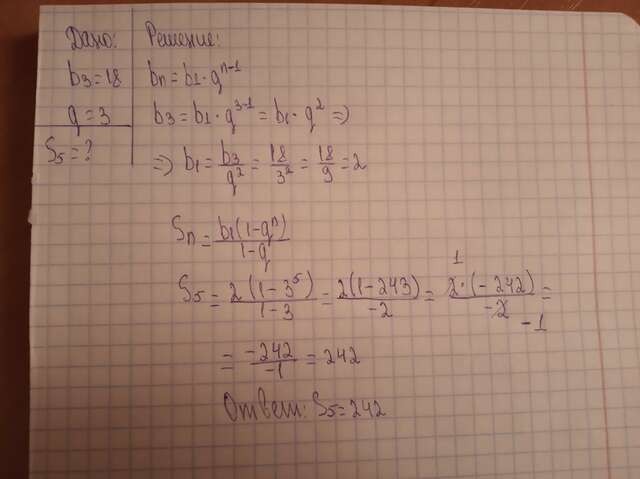 Дано:
b3=18
q=3
S5=?
Решение:
bn=b1·q^n-1
b3=b1·q^3-1=b1·q^2 =>
=> b1=b3/q^2=18/3^2=18/9=2
Sn=b1(1-q^n)/1-q
S5=2(1-3^5)/1-3=2(1-243)/-2=2·(-242)/-2=
1
-1
=-242/-1=242
Ответ: S5=242